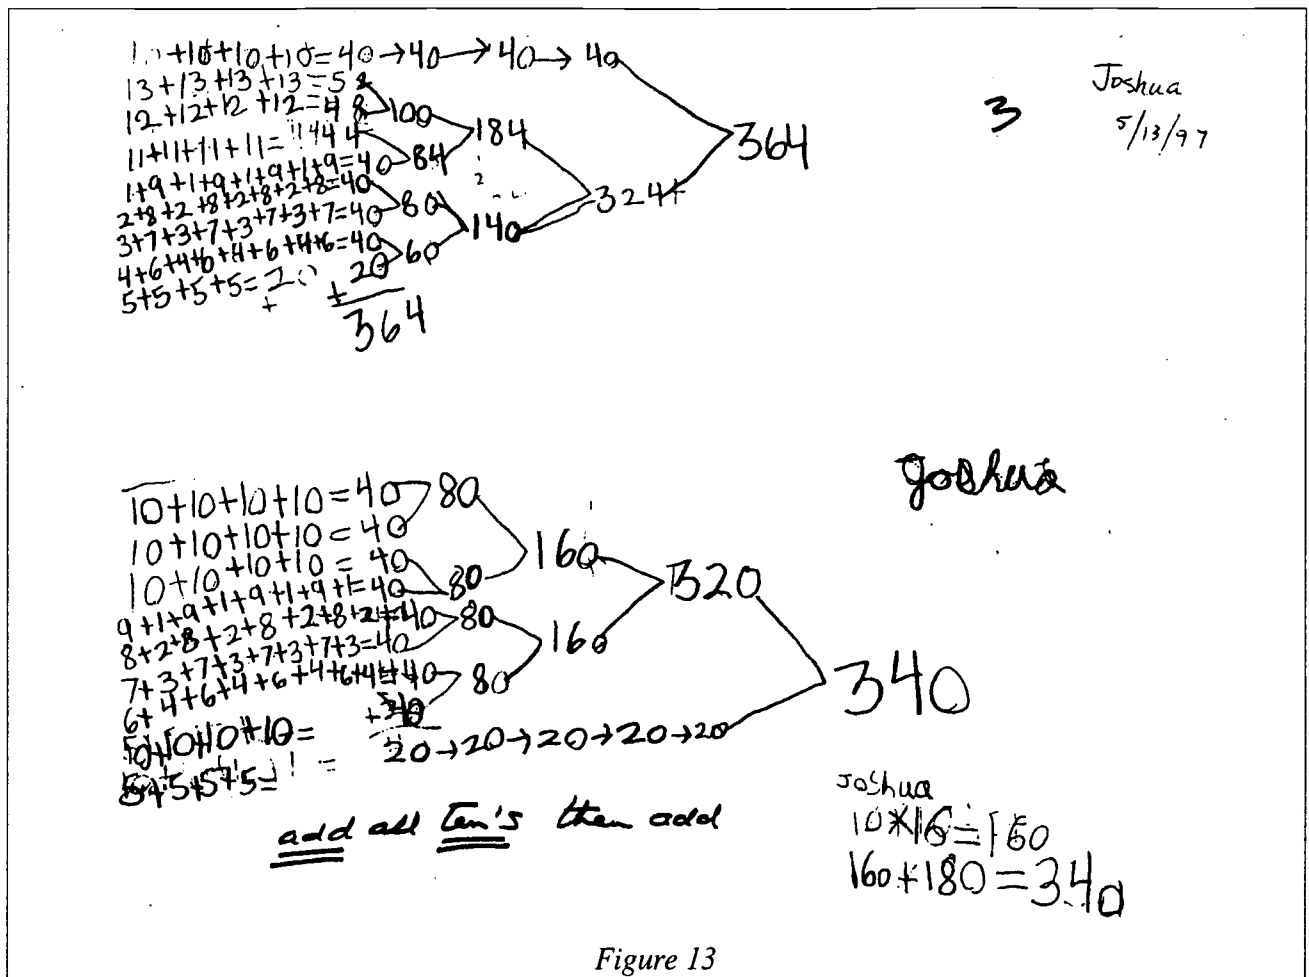 10+10+10+10=40→40→40→40
13+13+13+13=52
12+12+12+12=48
100
11+11+11+11=44
184
364
1+9+1+9+1+9+1+9=40
84
2+8+2+8+2+8+2+8=40
324
3+7+3+7+3+7+3+7=40
80
140
4+6+4+6+4+6+4+6=40
60
5+5+5+5=20
20
+
364
3
Joshua
5/13/97
Joshua
10+10+10+10=40
80
10+10+10+10=40
160
10+10+10+10=40
80
320
9+1+9+1+9+1+9+1=40
8+2+8+2+8+2+8+2=40
80
160
7+3+7+3+7+3+7+3=40
340
6+4+6+4+6+4+6+4=40
80
10+10+10+10=
20→20→20→20→20
5+5+5+5=
add all Ten's then add
Joshua
10×16=160
160+180=340
Figure 13